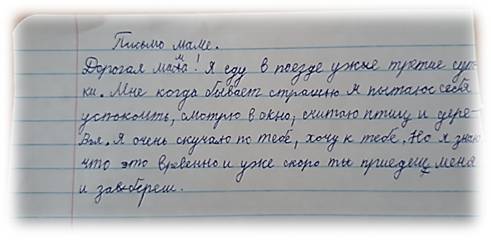 Письмо маме.
Дорогая мама! Я еду в поезде ужые третие сут-
ки. Мне когда бывает страшно я пытаюс себя
успокоить, смотрю в окно, считаю птиц и дере-
вья. Я очень скучаю по тебе, хочу к тебе. Но я знаю
что это временно и уже скоро ты приедеш меня
и завбереш.